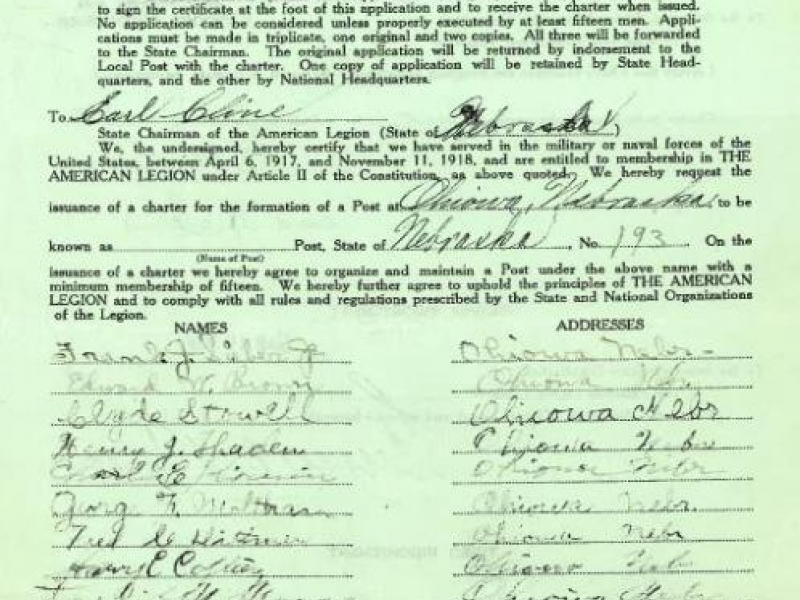 to sign the certificate at the foot of this application and to receive the charter when issued.
No application can be considered unless properly executed by at least fifteen men. Appli-
cations must be made in triplicate, one original and two copies. All three will be forwarded
to the State Chairman. The original application will be returned by indorsement to the
Local Post with the charter. One copy of application will be retained by State Head-
quarters, and the other by National Headquarters.
To Earl Cline
State Chairman of the American Legion (State of Nebraska)
We, the undersigned, hereby certify that we have served in the military or naval forces of the
United States, between April 6, 1917, and November 11, 1918, and are entitled to membership in THE
AMERICAN LEGION under Article II of the Constitution, as above quoted. We hereby request the
issuance of a charter for the formation of a Post at Ohiowa, Nebraska to be
known as Post, State of Nebraska, No. 193 On the
(Name of Post)
issuance of a charter we hereby agree to organize and maintain a Post under the above name with a
minimum membership of fifteen. We hereby further agree to uphold the principles of THE AMERICAN
LEGION and to comply with all rules and regulations prescribed by the State and National Organizations
of the Legion.
NAMES ADDRESSES
Frank J. Jr Ohiowa Nebr
Edward W. Brown Ohiowa Nebr
Clyde Stowell Ohiowa Nebr
Henry J. Ohiowa Nebr
Ohiowa Nebr
George F. Ohiowa Nebr.
Fred Ohiowa Nebr
Harry E Ohiowa Nebr
Ohiowa Nebr